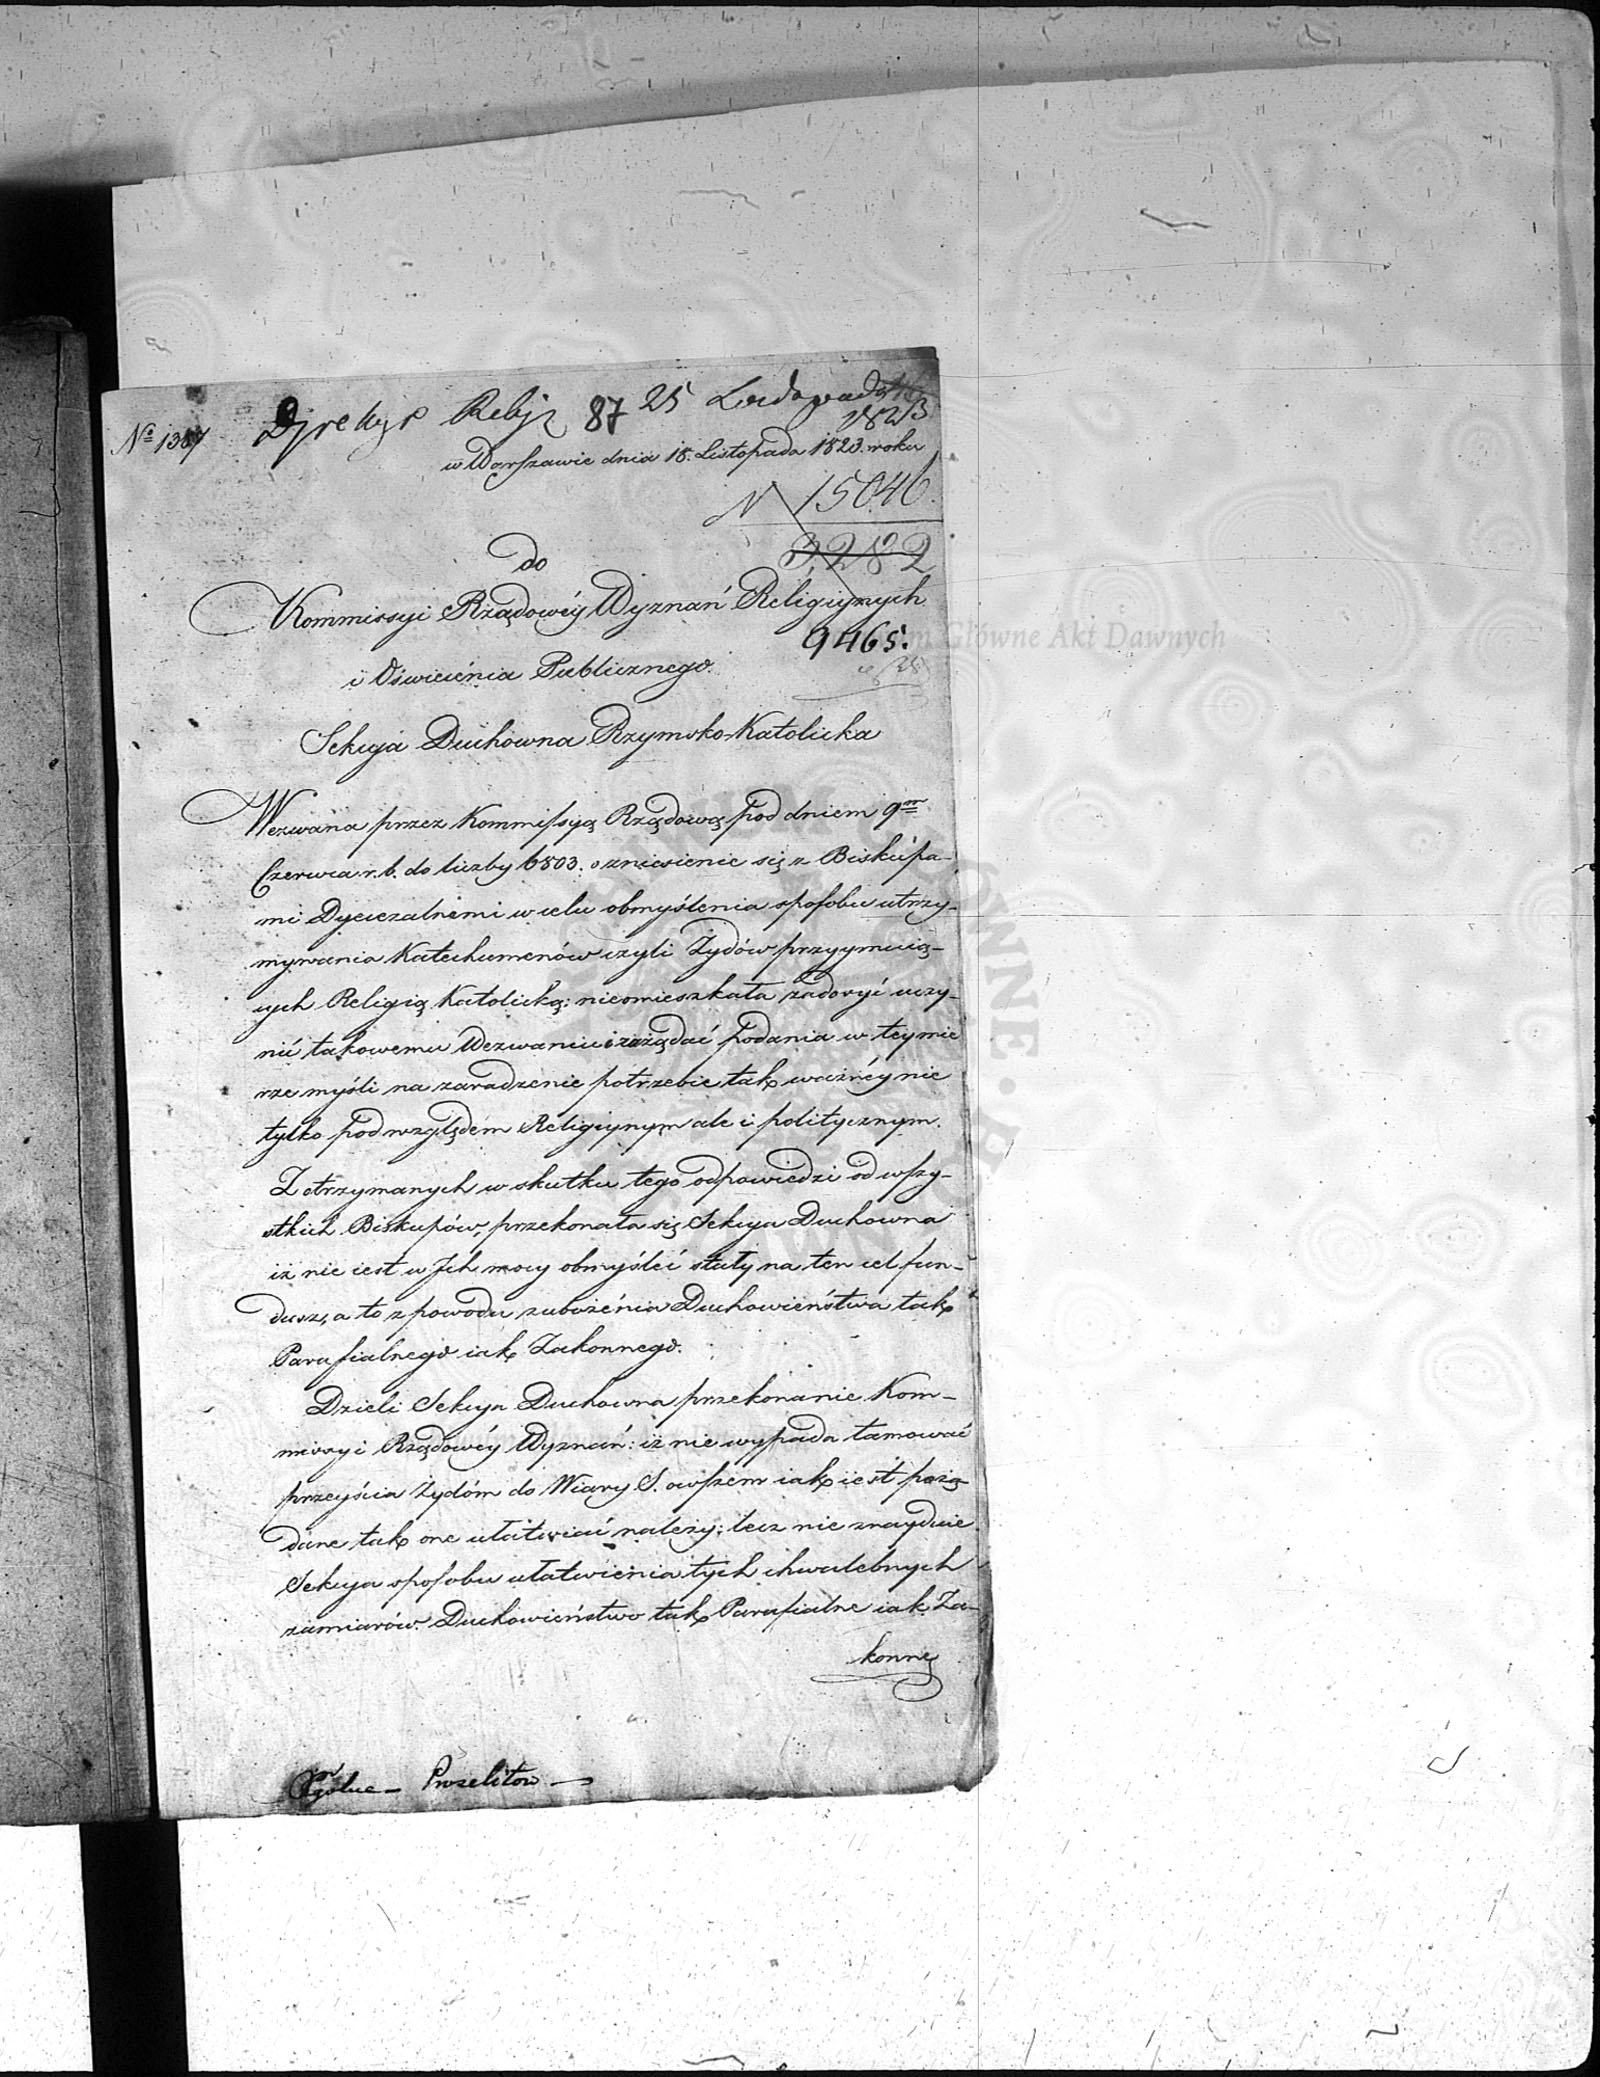 Nº 1387 Dyrekcya Religi 87 25 Listopada 1823
w Warszawie dnia 18. Listopada 1823. roku
N 15046.
3,282
do
Kommissyi Rządowéy Wyznań Religiynych
9465.
i Oświecenia Publicznego.
Sekcya Duchowna Rzymsko-Katolicka
Wezwana przez Kommissyą Rządową pod dniem 9m
Czerwca r. b. do liczby 6803. o zniesienie się z Biskupa-
mi Dyecezalnemi w celu obmyślenia sposobu utrzy-
mywania Katechumenów czyli Żydów przyymuią-
cych Religią Katolicką; nieomieszkała zadosyć uczy-
nić takowemu Wezwaniu i zażądać podania w tey mie
rze myśli na zaradzenie potrzebie tak ważnéy nie
tylko pod względem Religiynym ale i politycznym.
Z otrzymanych w skutku tego odpowiedzi od wszy-
stkich Biskupów, przekonała się Sekcya Duchowna
iż nie iest w Ich mocy obmyśleć stały na ten cel fun-
dusz, a to z powodu zubożenia Duchowieństwa tak
Parafialnego iak Zakonnego.
Dzieli Sekcya Duchowna przekonanie Kom-
missyi Rządowéy Wyznań: iż nie wypada tamować
przeyścia Żydóm do Wiary S. owszem iak iest pożą-
dane tak one ułatwiać należy; lecz nie znayduie
Sekcya sposobu ułatwienia tych chwalebnych
zamiarów. Duchowieństwo tak Parafialne iak Za-
konne
Ogólne – Prozelitow –
Główne Akt Dawnych